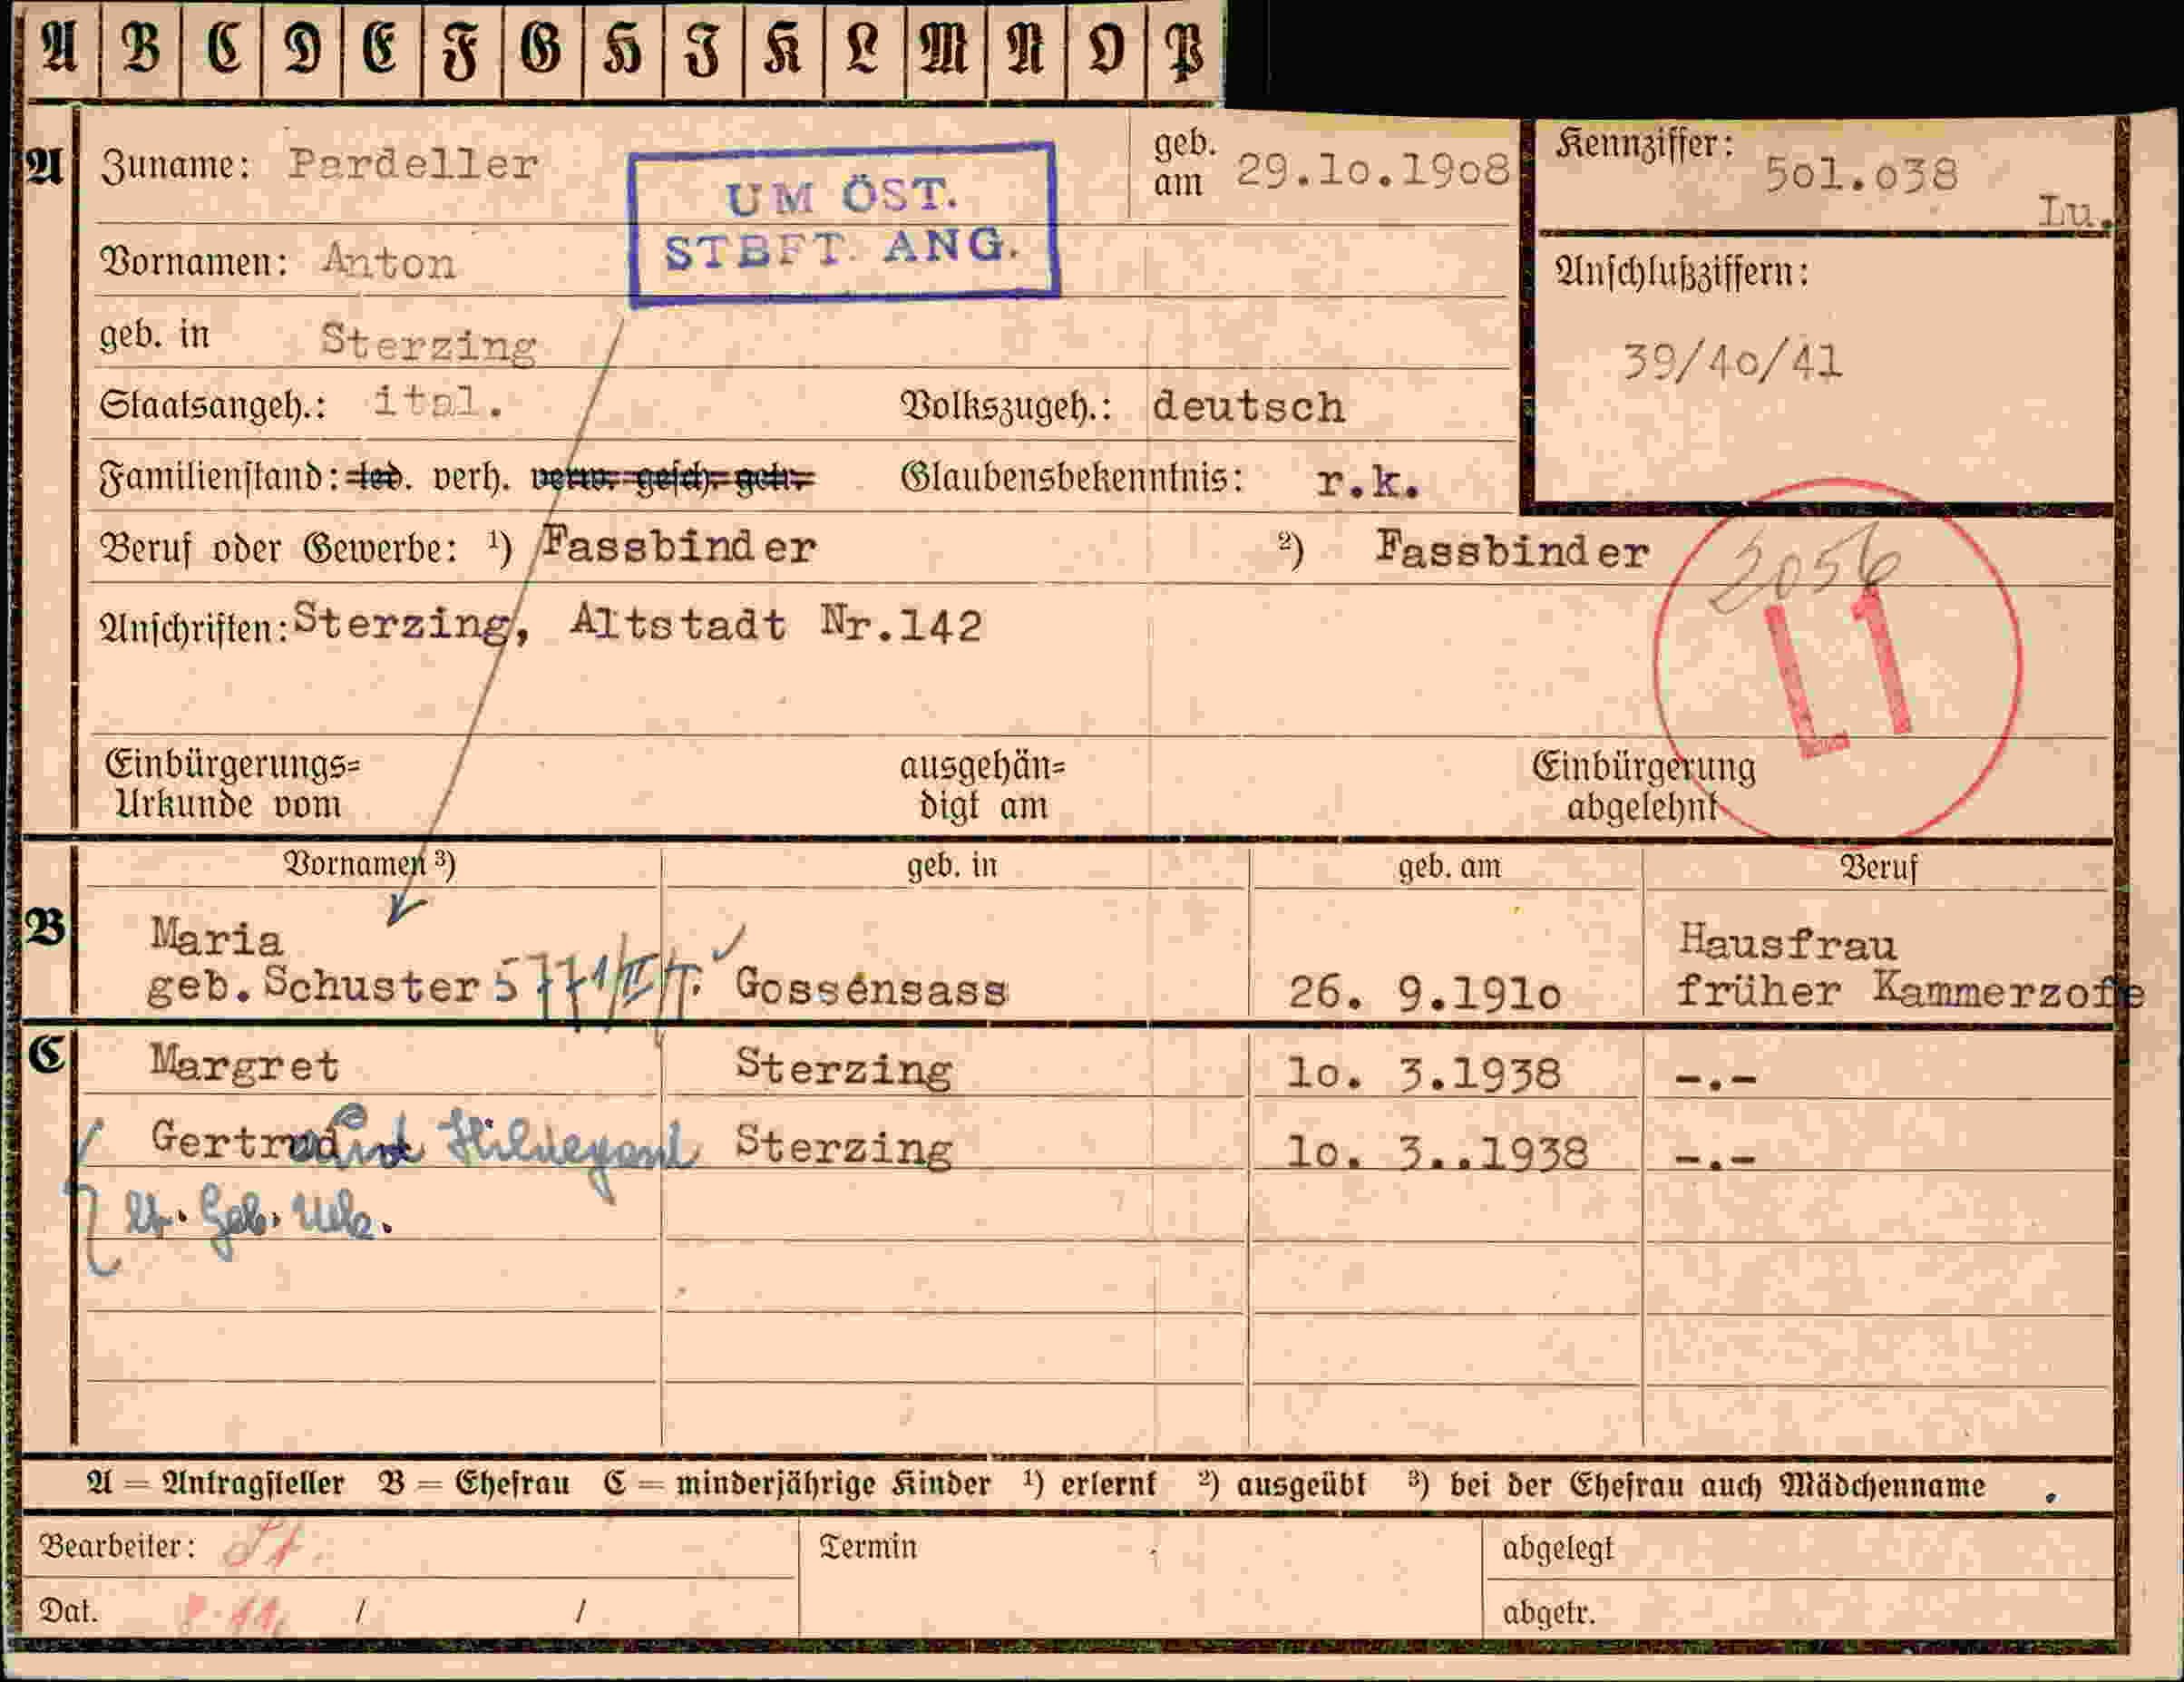 A B C D E F G H I K L M N O P
A Zuname: Pardeller
UM ÖST.
STBFT. ANG.
geb. am 29.10.1908
Kennziffer: 501.038
Lu.
Vornamen: Anton
Anschlußziffern:
39/40/41
geb. in Sterzing
Staatsangeh.: ital. Volkszugeh.: deutsch
Familienstand: led. verh. verw. gesch. getr. Glaubensbekenntnis: r.k.
Beruf oder Gewerbe: ¹) Fassbinder ²) Fassbinder
2056
L1
Anschriften: Sterzing, Altstadt Nr.142
Einbürgerungs= ausgehän= Einbürgerung
Urkunde vom digt am abgelehnt
Vornamen ³) geb. in geb. am Beruf
B Maria Hausfrau
geb. Schuster Gossensass 26. 9.1910 früher Kammerzofe
C Margret Sterzing 10. 3.1938 -.-
Gertrud Hildegard Sterzing 10. 3..1938 -.-
lt. Geb. Urk.
A = Antragsteller B = Ehefrau C = minderjährige Kinder ¹) erlernt ²) ausgeübt ³) bei der Ehefrau auch Mädchenname .
Bearbeiter: St. Termin abgelegt
Dat. / / abgetr.